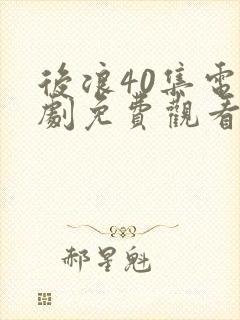 後浪40集電
劇免費觀看
郝星魁